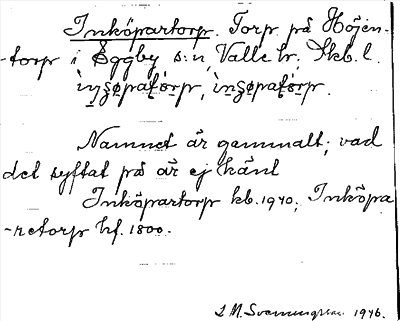 Inköpartorp. Torp på Höjen-
-torp i Eggby s:n, Valle hr, Skb. l.

Namnet är gammalt; vad
det syftat på är ej känt
Inköpartorp kb. 1940; Inköpa
-retorp hf. 1800.
1946.